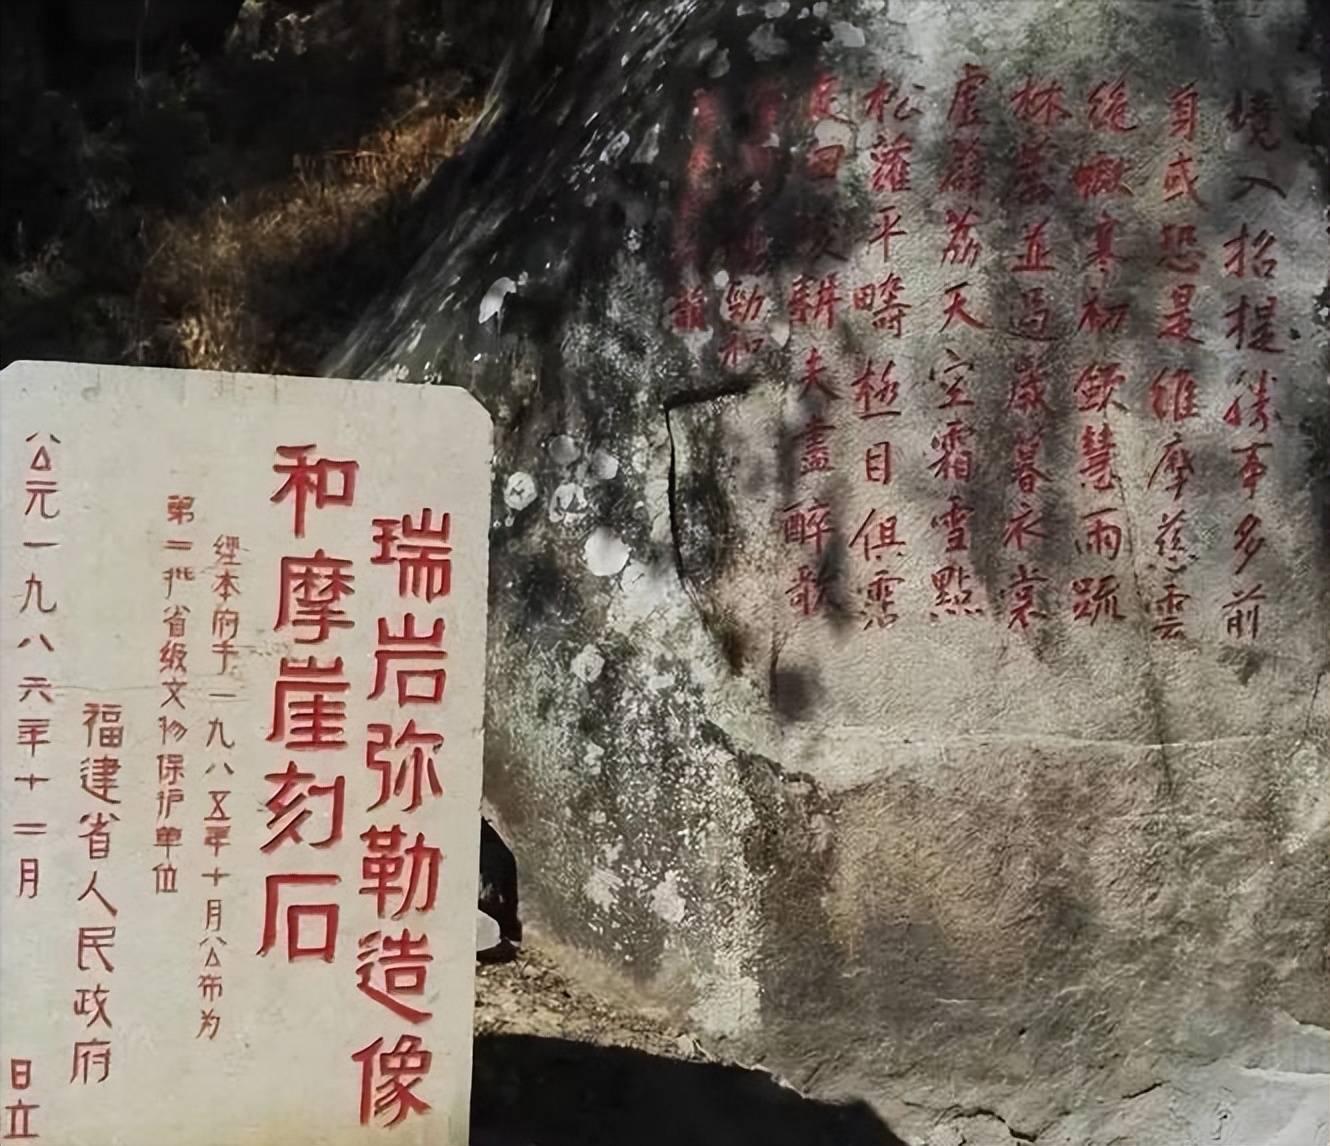 境入招提勝事多前
身或恐是維摩慈雲
纔瞰寒初歛慧雨疏
林暮並過歲暮衣裳
虛薜荔天空霜雪點
松蘿平疇極目俱霑
足回咲耕夫盡醉歌
勁和
瑞岩弥勒造像
和摩崖刻石
經本府于一九八五年十月公布为
第二批省级文物保护单位
福建省人民政府
公元一九八六年十二月 日立